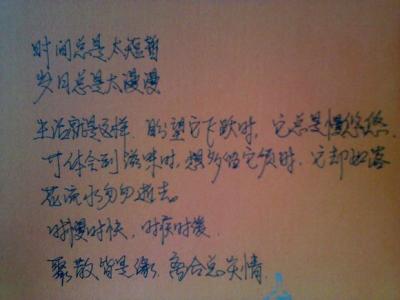 时间总是太短暂
岁月总是太漫漫
生活就是这样. 盼望它飞跃时, 它总是慢悠悠.
体会到滋味时, 想多留它顷时, 它却如落
花流水匆匆逝去。
时慢时快, 时疾时缓.
聚散皆是缘, 离合总关情.